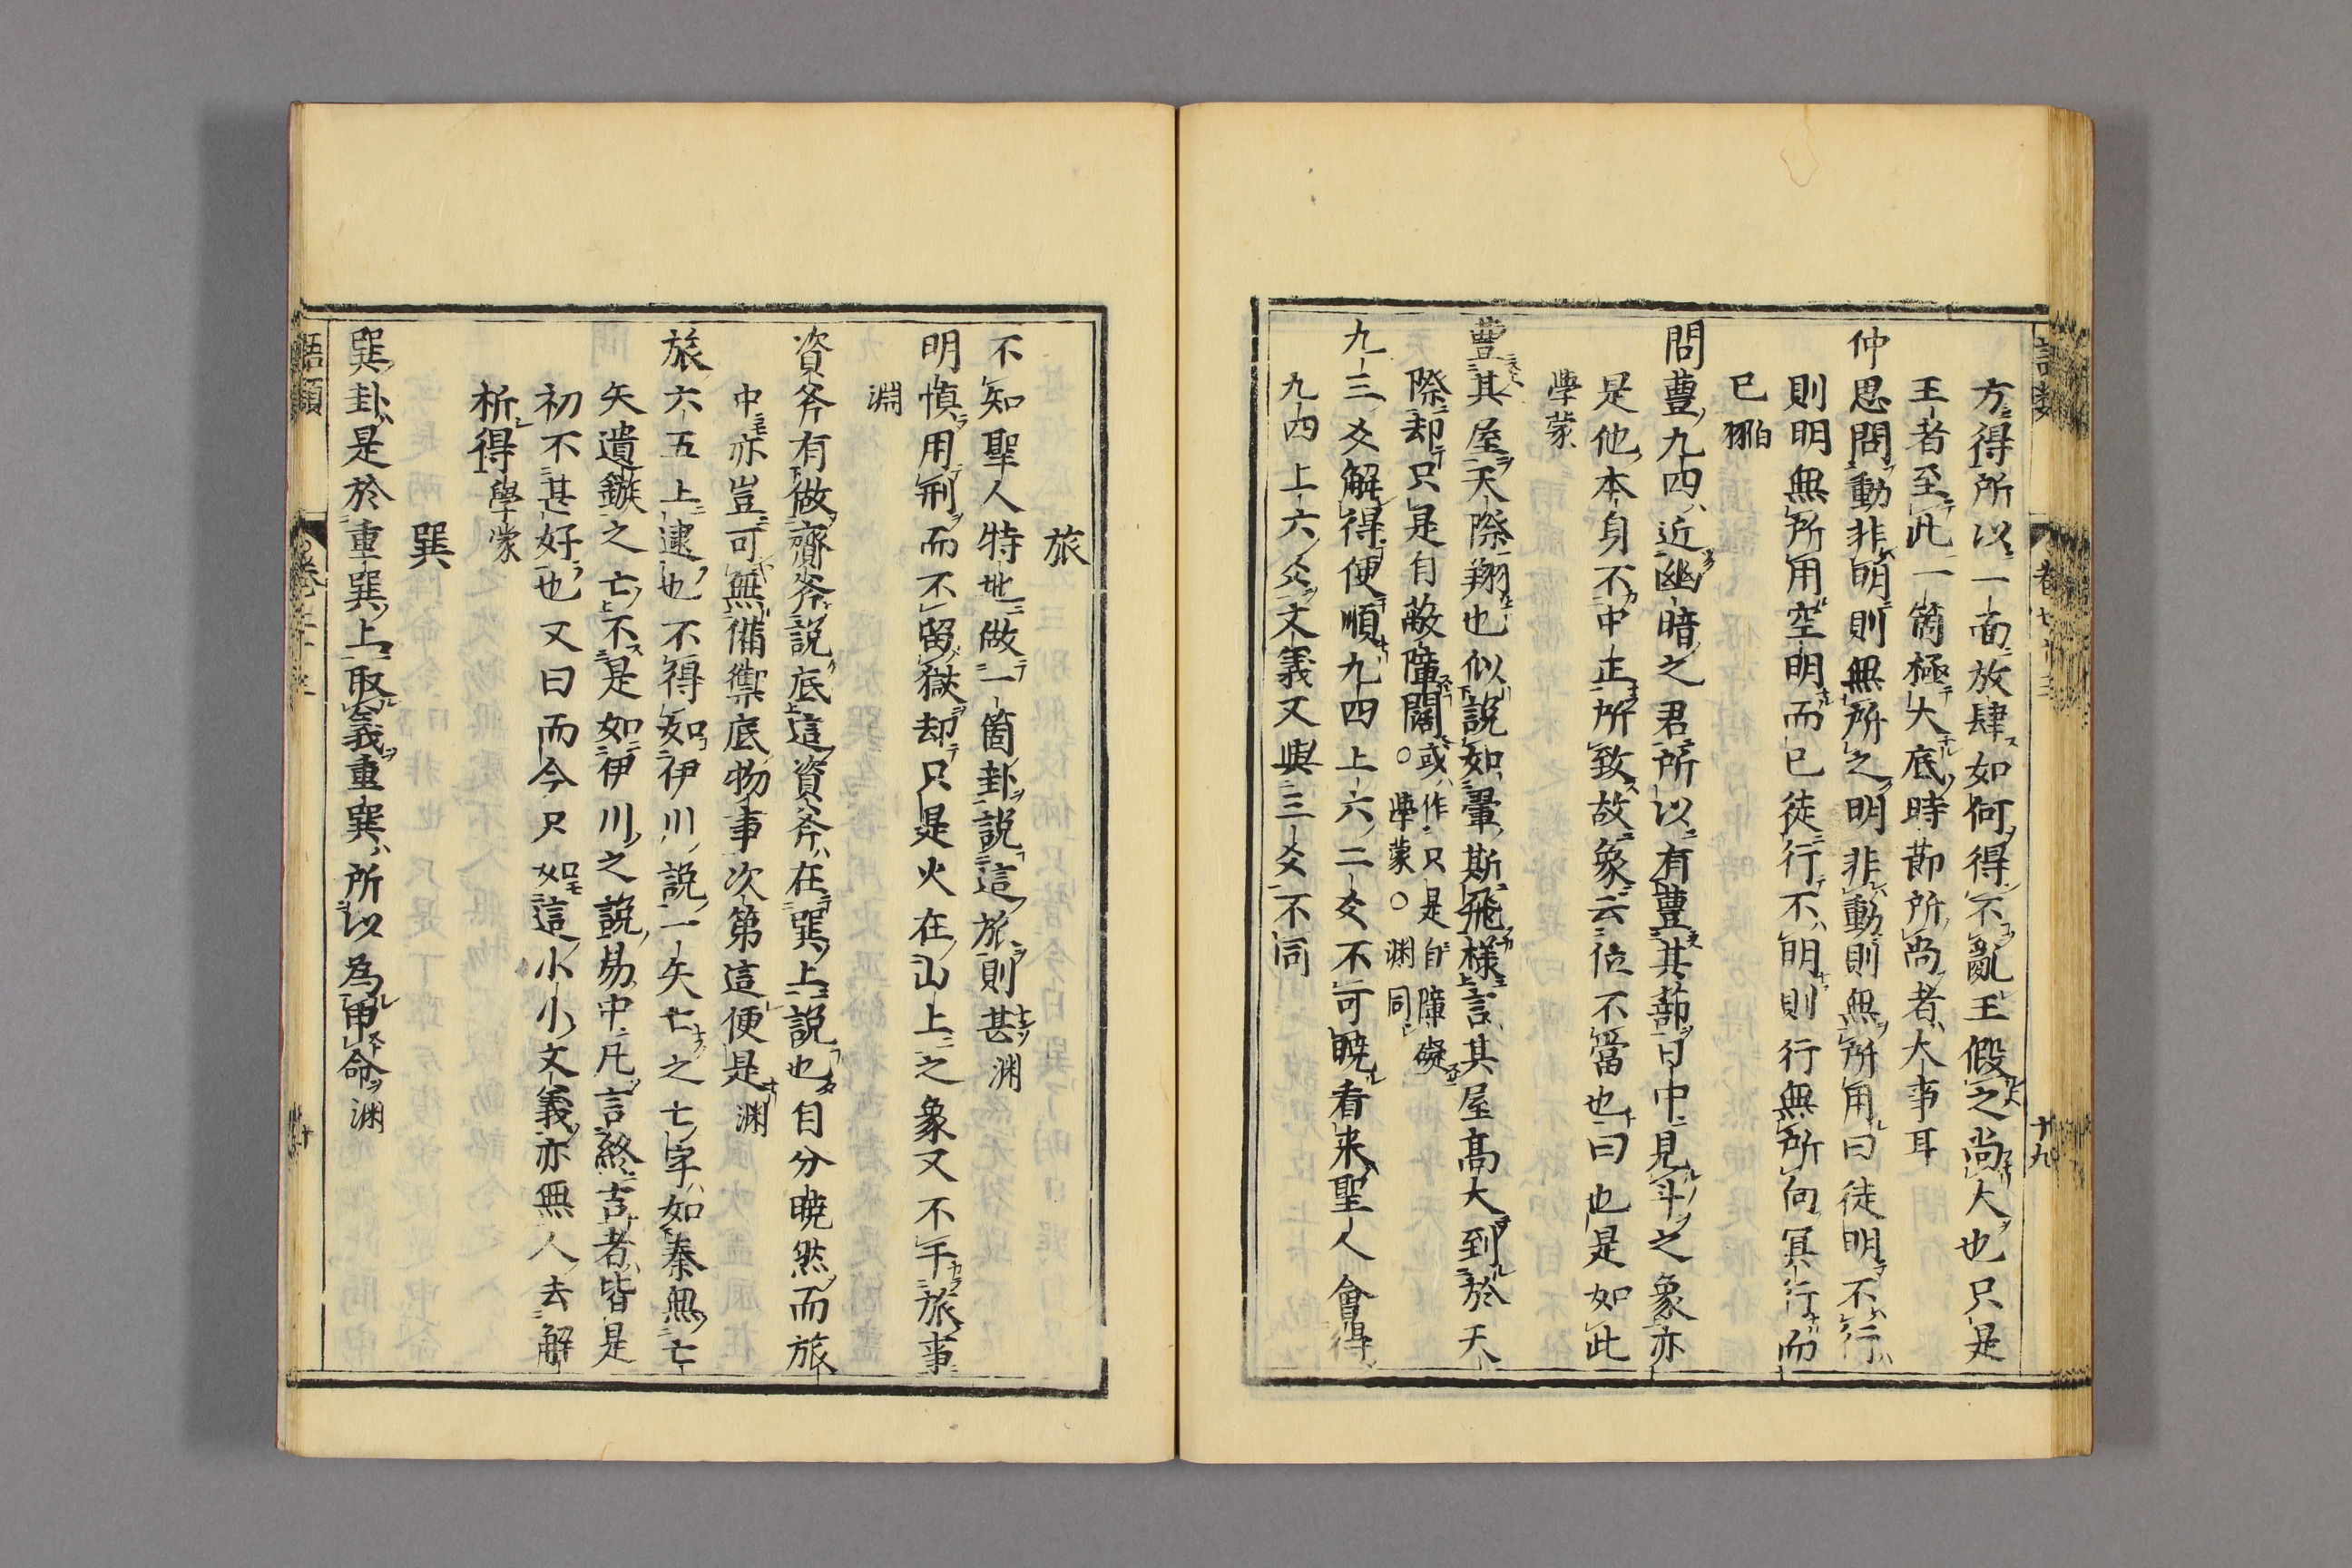 方得所以一面放肆如何得不亂王假之尚大也只是
王者至此一箇極大底時節所尚者大事耳
仲思問動非明則無所之明非動則無所用曰徒明不行
則明無所用空明而已徒行不明則行無所向冥行而
已 䎂伯
問豊九四近幽暗之君所以有豊其蔀日中見斗之象亦
是他本身不中正所致故象云位不當也曰也是如此
學蒙
豊其屋天際翔也似說如翬斯飛様言其屋高大到於天
際却只是自蔽障闊○或作只是自障礙
學蒙○淵同
九三爻解得便順九四上六二爻不可曉看来聖人會得
九四上六爻文義又與三爻不同
旅
不知聖人特地做一箇卦說這旅則甚 淵
明慎用刑而不留獄却只是火在山上之象又不干旅事
淵
資斧有做齎斧說底這資斧在巽上說也自分曉然而旅
中亦豈可無備禦底物事次第這便是 淵
旅六五上逮也不得如伊川說一矢亡之亡字如秦無亡
矢遺鏃之亡不是如伊川之說易中凡言終吉者皆是
初不甚好也又曰而今只如這小小文義亦無人去解
析得 學蒙
巽
巽卦是於重巽上取義重巽所以為申命 淵